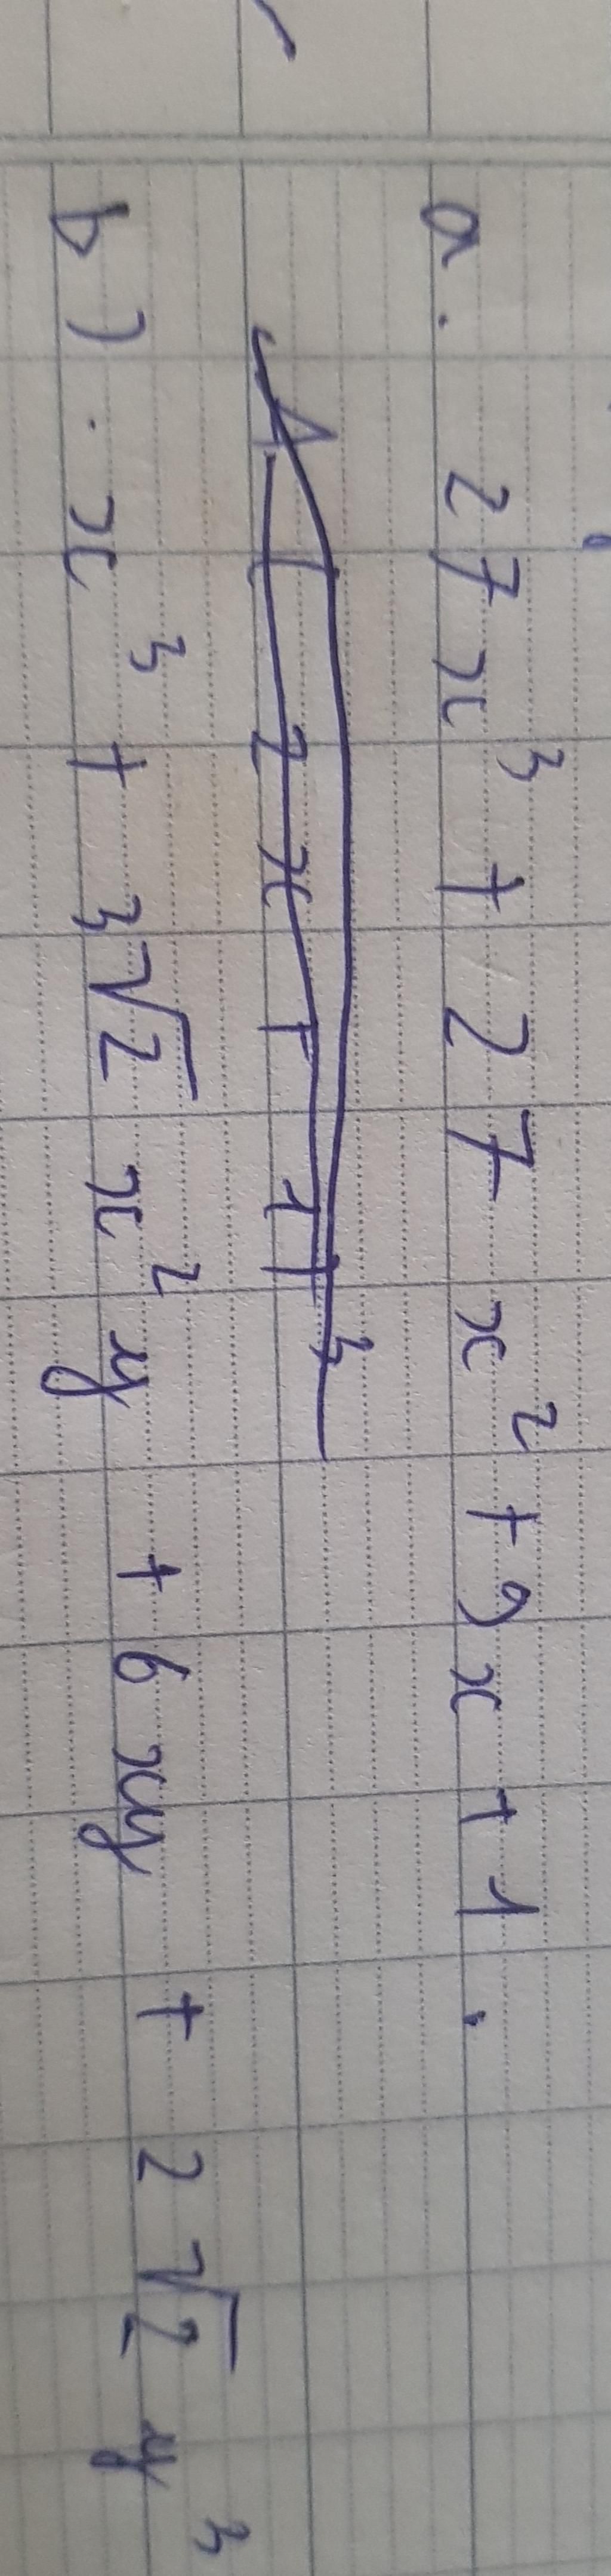 a. 27x³ + 27x² + 9x + 1.
b). x³ + 3√2 x²y + 6xy + 2√2 y³